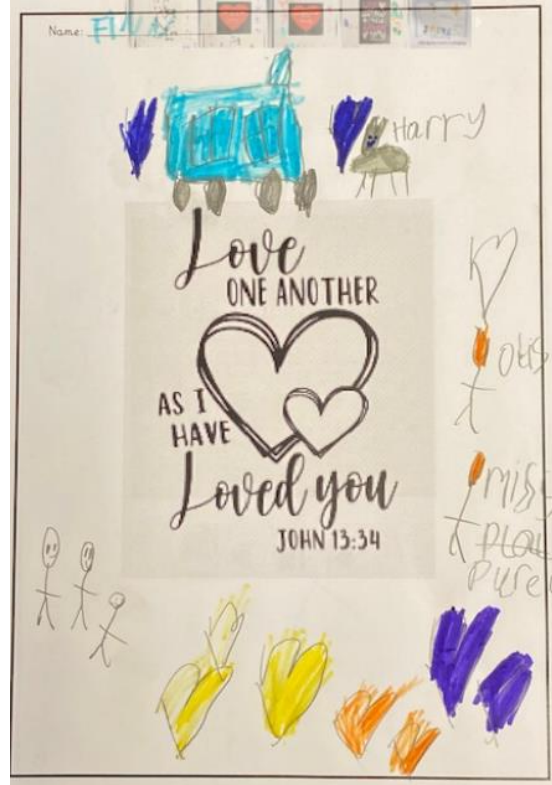 Name: FINN
Harry
Love
ONE ANOTHER
AS I
HAVE
Loved you
JOHN 13:34
Otis
miss